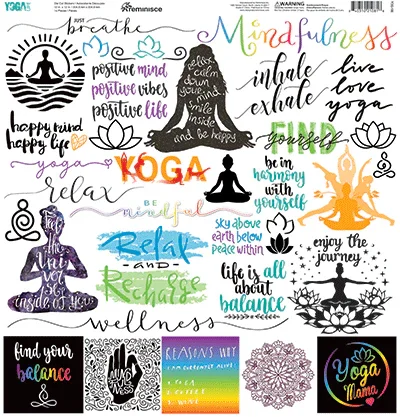 YOGA
reminisce
WARNING
JUST
breathe
Mindfulness
positive mind
positive vibes
positive life
relax
calm down
your
mind
smile
inside
and be happy
inhale
exhale
live
love
yoga
happy mind
happy life
FIND
yourself
yoga
YOGA
be in
harmony
with
yourself
relax
BE
mindful
Feel
the
Universe
inside of you
Relax
and
Recharge
sky above
earth below
peace within
enjoy the
journey
life is all
about
balance
wellness
find your
balance
REASONS WHY
I AM CURRENTLY ALIVE:
1. YOGA
2. COFFEE
3. WINE
Yoga
Mama